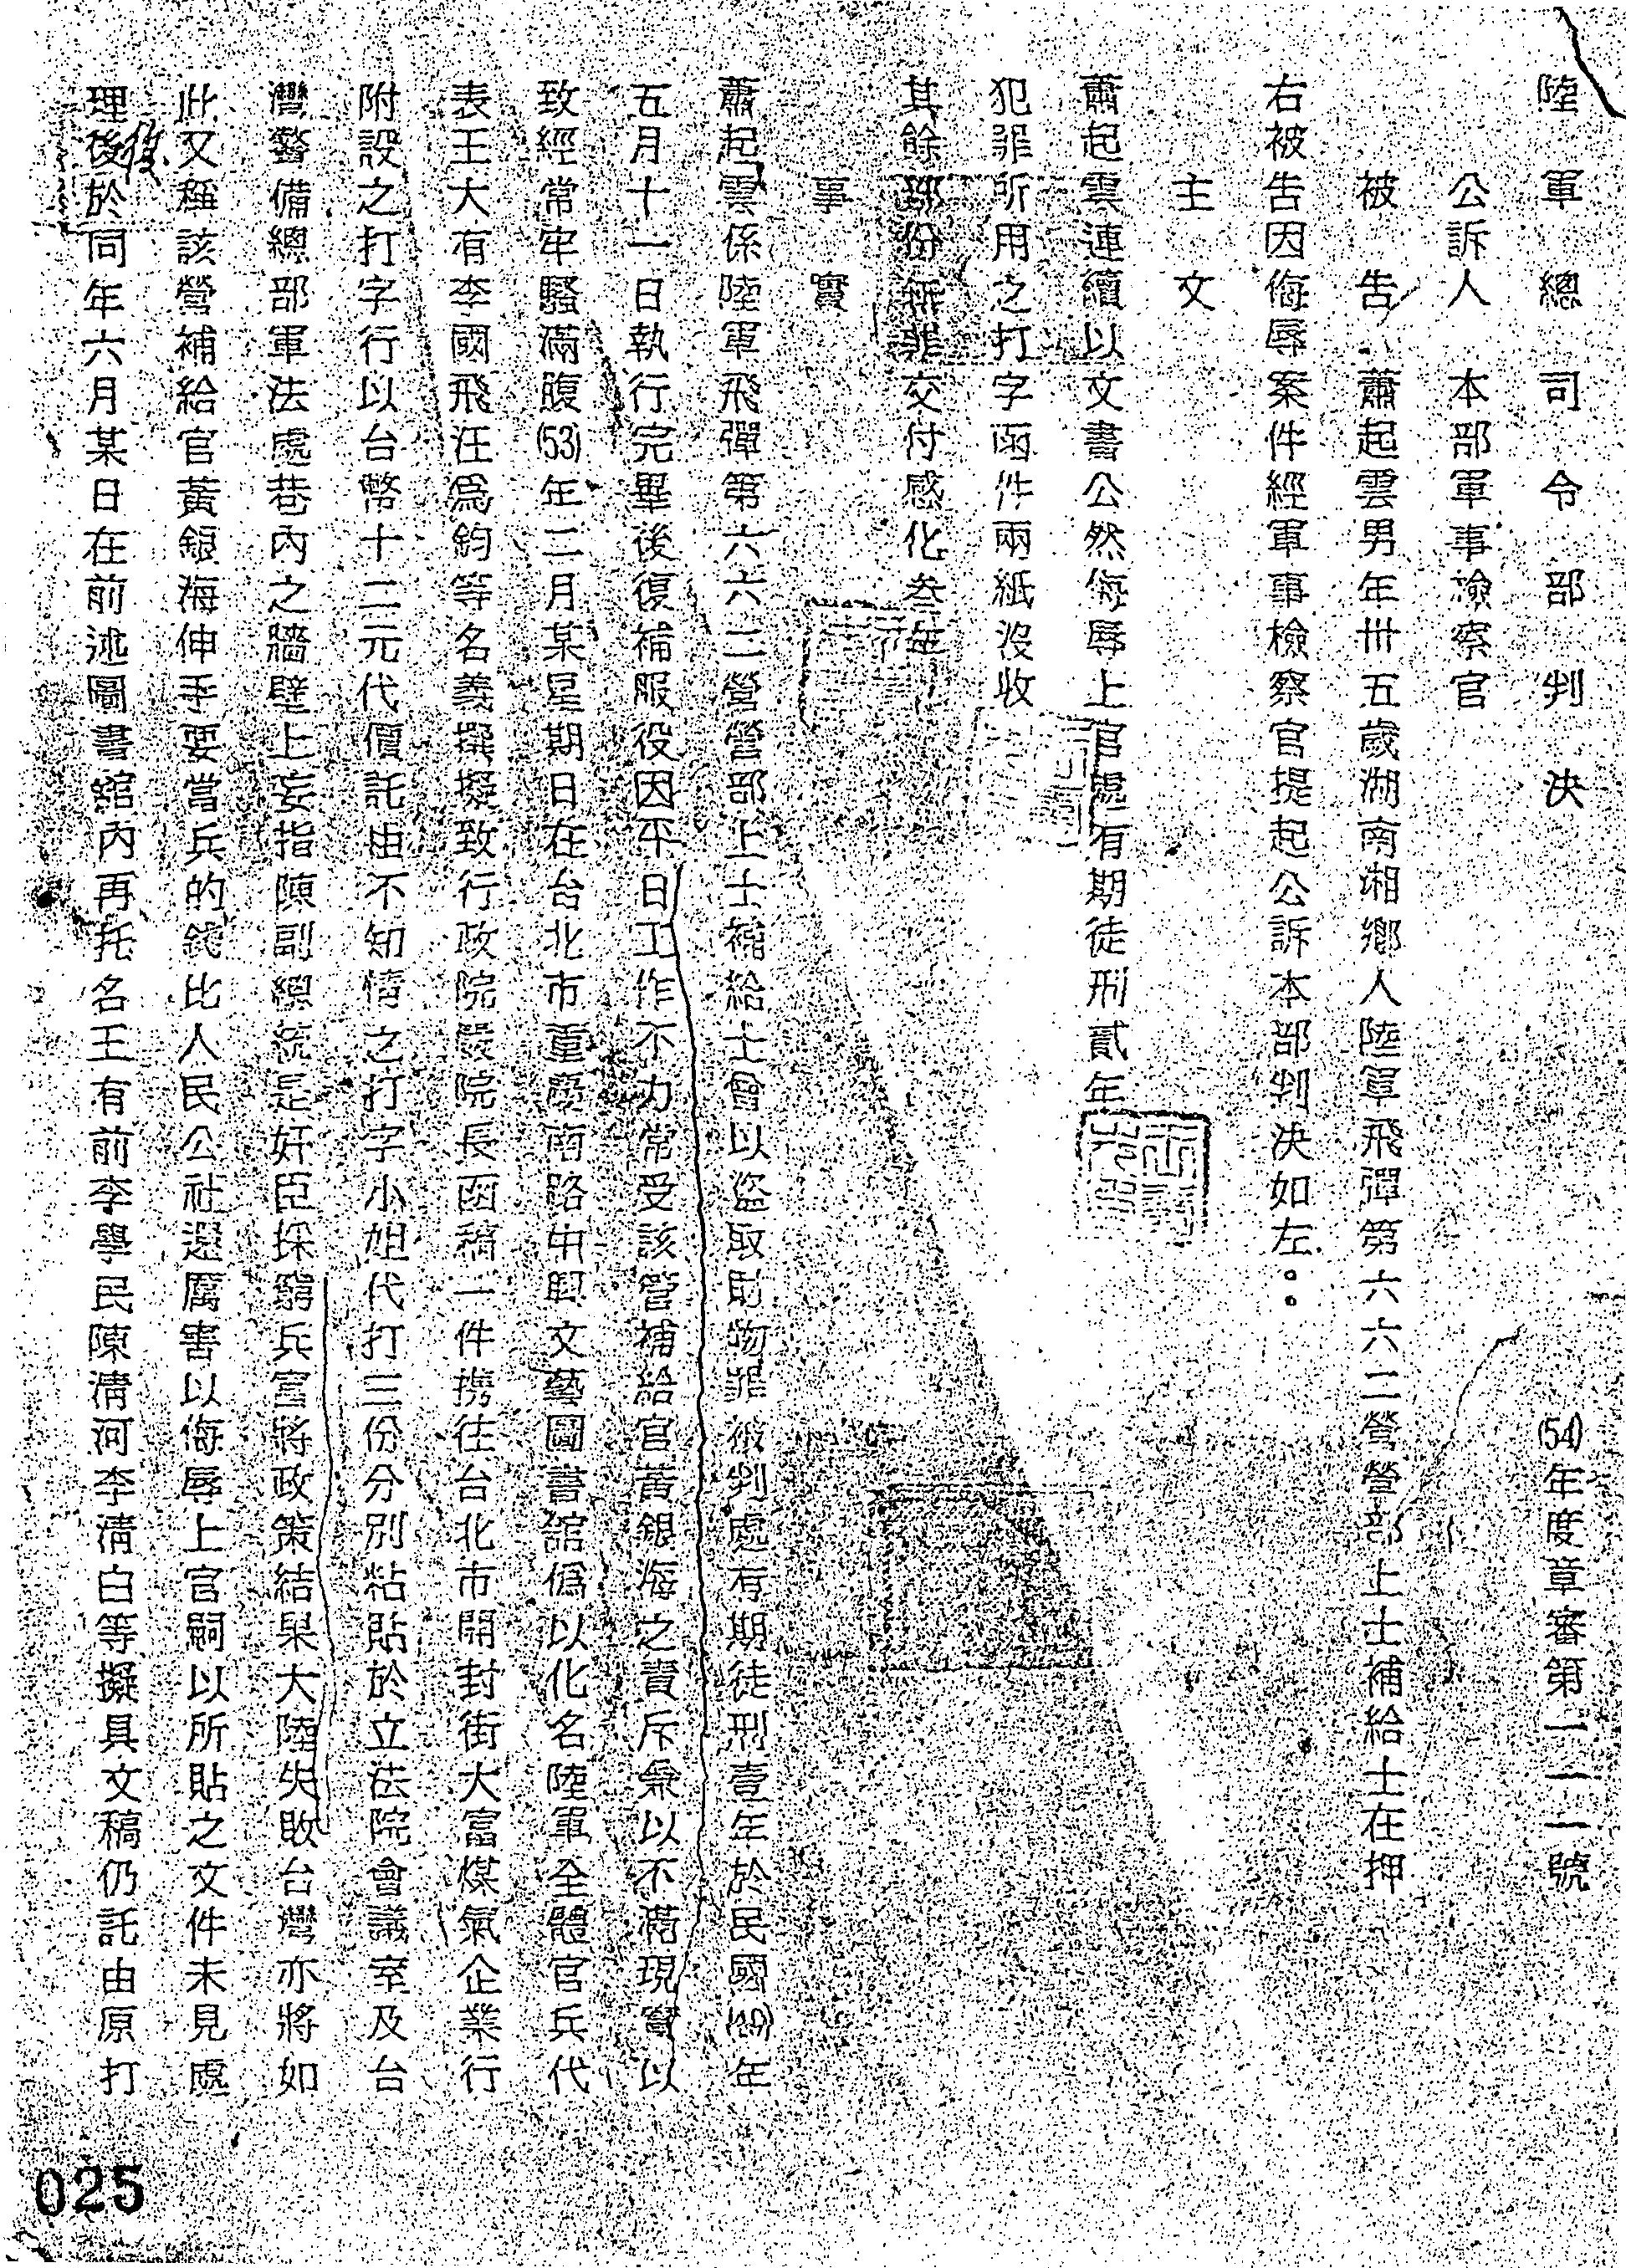 陸軍總司令部判決
(54)年度章審第一一一號
公訴人 本部軍事檢察官
被告 蕭起雲男年卅五歲湖南湘鄉人陸軍飛彈第六六二營營部上士補給士在押
右被告因侮辱案件經軍事檢察官提起公訴本部判決如左：
主文
蕭起雲連續以文書公然侮辱上官處有期徒刑貳年
犯罪所用之打字函件兩紙沒收
其餘部份無罪交付感化叁年
事實
蕭起雲係陸軍飛彈第六六二營營部上士補給士曾以盜取財物罪被判處有期徒刑壹年於民國(49)年
五月十一日執行完畢後復補服役因平日工作不力常受該營補給官黃銀海之責斥兼以不滿現實以
致經常牢騷滿腹(53)年二月某星期日在台北市重慶南路中國文藝圖書館偽以化名陸軍全體官兵代
表王大有李國飛汪為鈞等名義撰擬致行政院嚴院長函稿一件携往台北市開封街大富煤氣企業行
附設之打字行以台幣十二元代價託由不知情之打字小姐代打三份分別粘貼於立法院會議室及台
灣警備總部軍法處巷內之牆壁上妄指陳副總統是奸臣採窮兵官將政策結果大陸失敗台灣亦將如
此又稱該營補給官黃銀海伸手要當兵的錢比人民公社還厲害以侮辱上官嗣以所貼之文件未見處
理後復於同年六月某日在前述圖書館內再托名王有前李學民陳清河李清白等擬具文稿仍託由原打
025